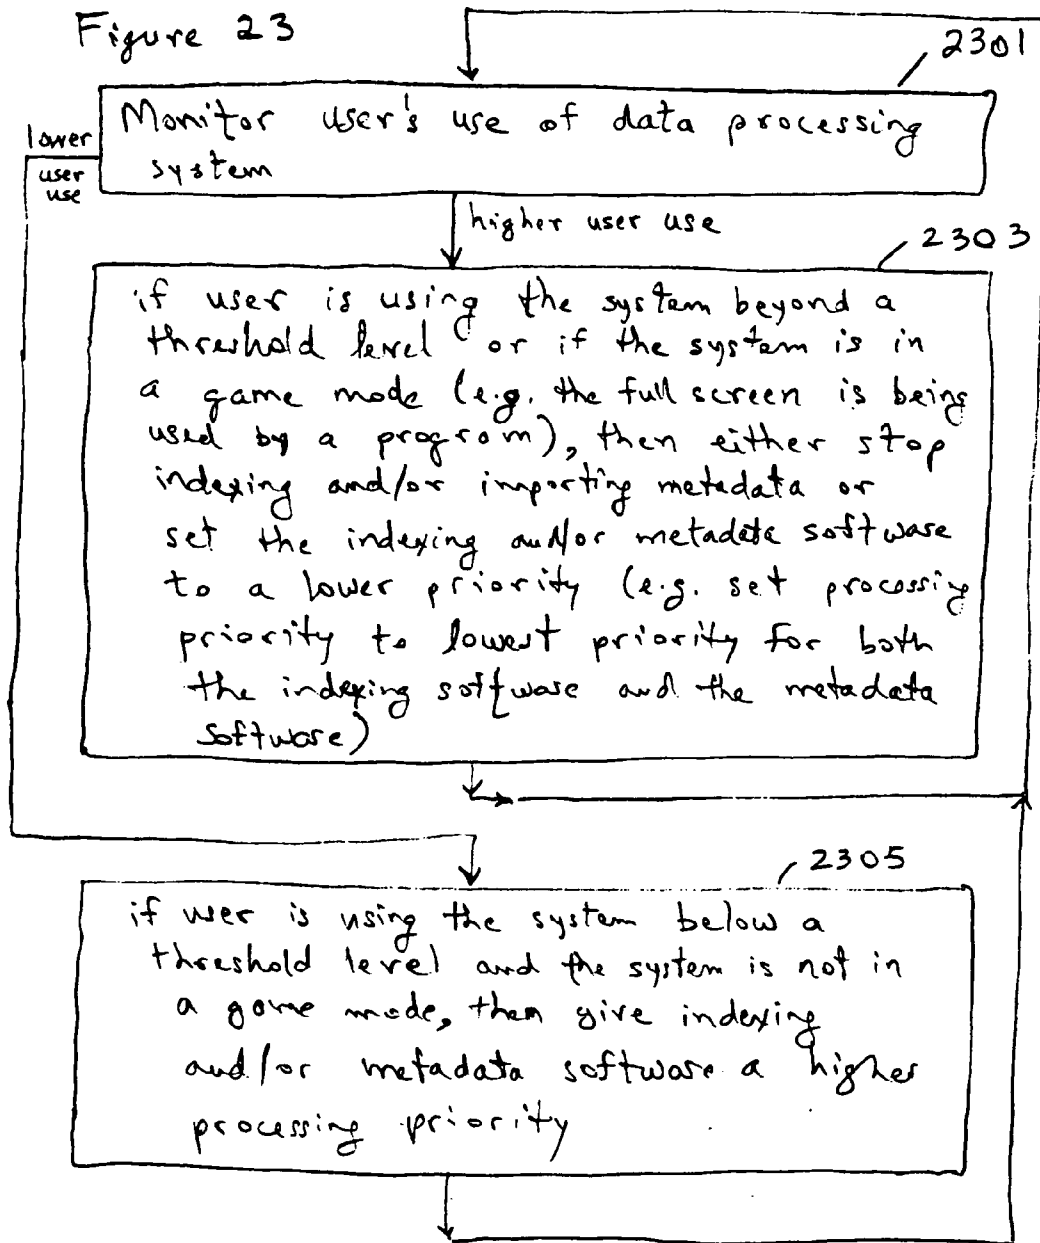 Figure 23
2301
Monitor user's use of data processing
system
lower
user
use
higher user use
2303
if user is using the system beyond a
threshold level or if the system is in
a game mode (e.g. the full screen is being
used by a program), then either stop
indexing and/or importing metadata or
set the indexing and/or metadata software
to a lower priority (e.g. set processing
priority to lowest priority for both
the indexing software and the metadata
software)
2305
if user is using the system below a
threshold level and the system is not in
a game mode, then give indexing
and/or metadata software a higher
processing priority